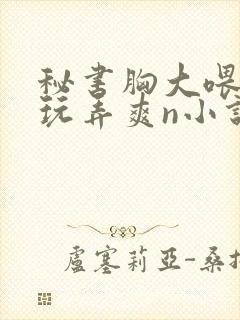 秘书胸大喂
玩弄爽n小
盧塞莉亞-桑